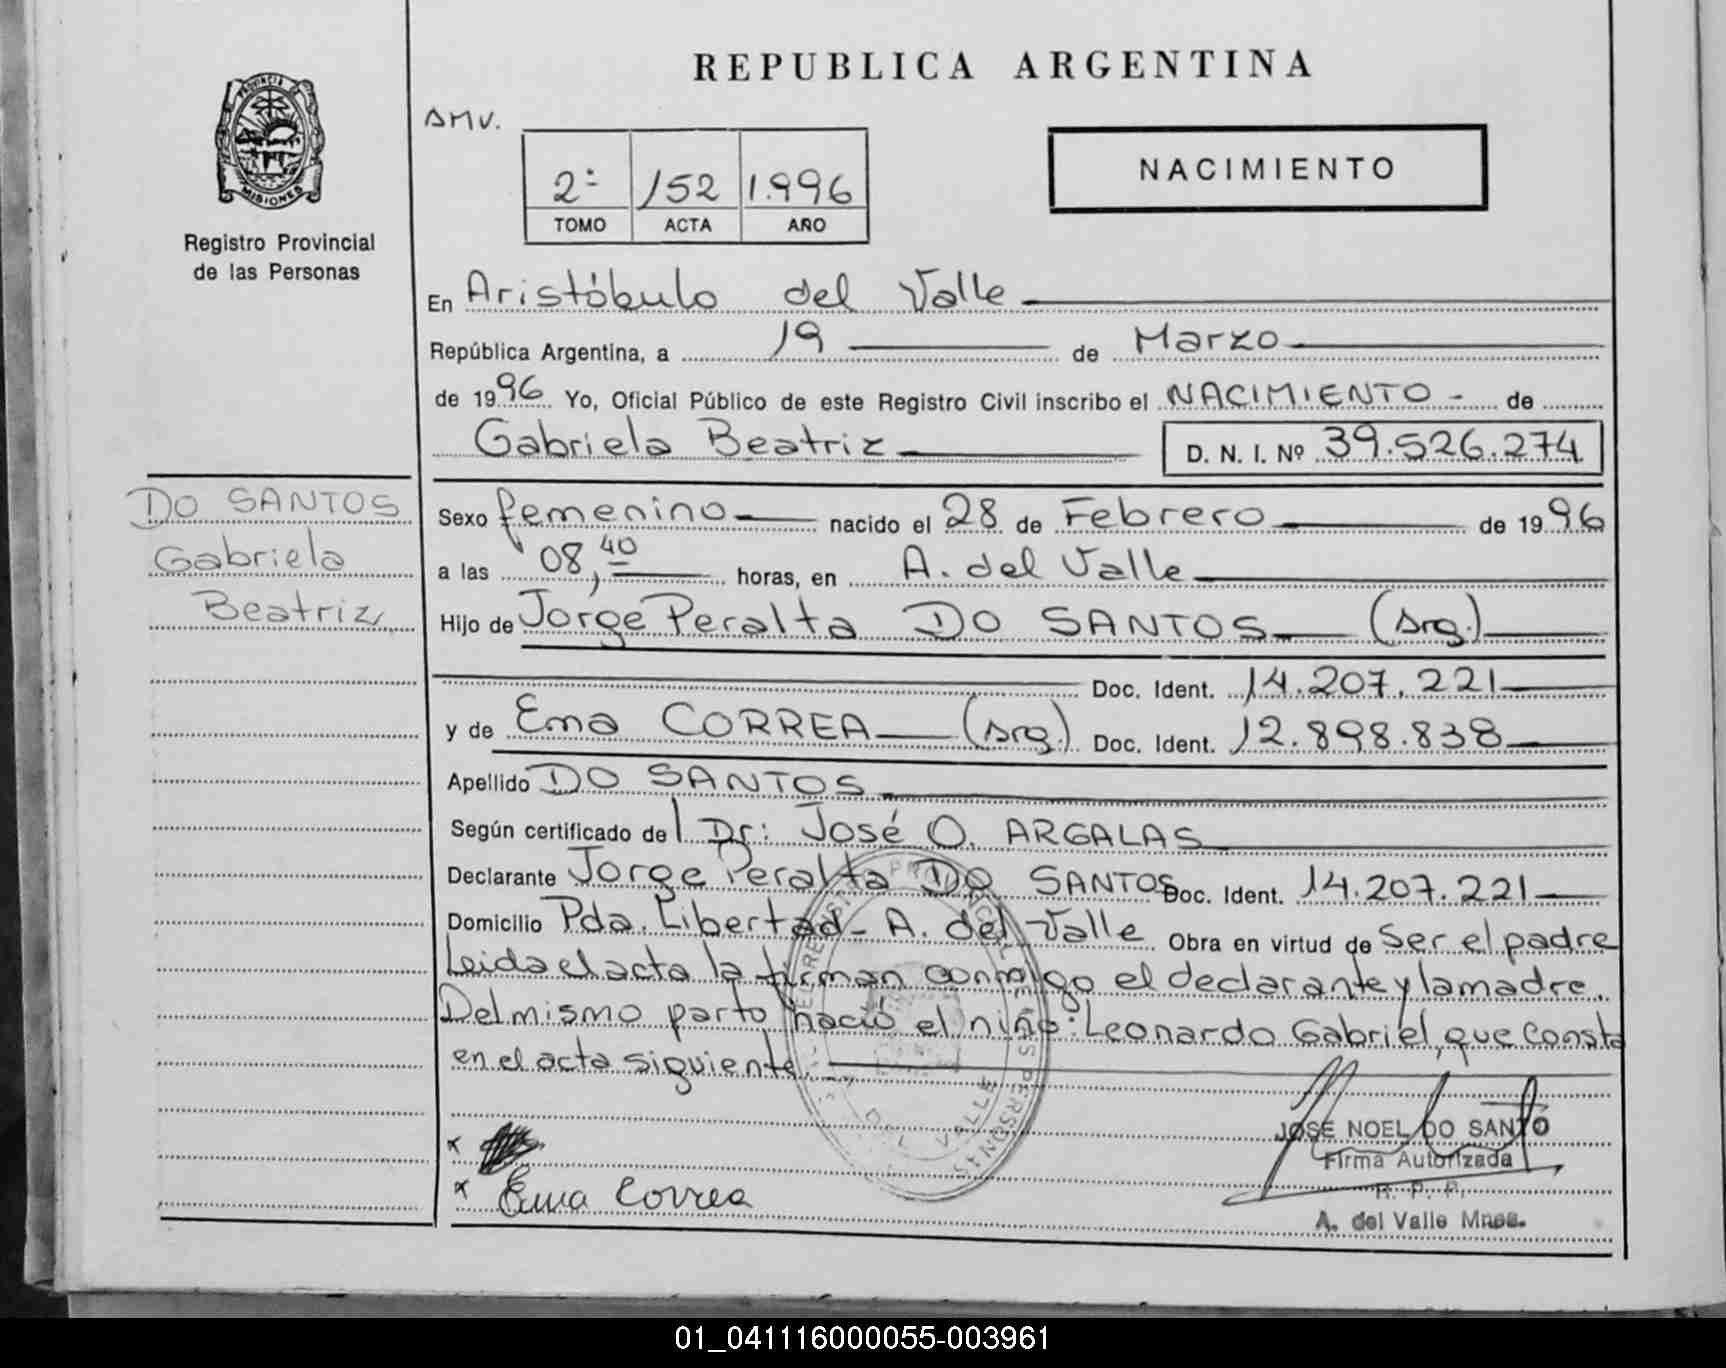 REPUBLICA ARGENTINA
PROVINCIA DE
MISIONES
Registro Provincial
de las Personas
AMV.
2º 152 1.996
TOMO ACTA AÑO
NACIMIENTO
En Aristóbulo del Valle
República Argentina, a 19 de Marzo
de 1996 Yo, Oficial Público de este Registro Civil inscribo el NACIMIENTO - de
Gabriela Beatriz D. N. I. Nº 39.526.274
DO SANTOS
Gabriela
Beatriz
Sexo femenino nacido el 28 de Febrero de 1996
a las 08,40 horas, en A. del Valle
Hijo de Jorge Peralta DO SANTOS (Arg.)
Doc. Ident. 14.207.221
y de Ema CORREA (Arg.) Doc. Ident. 12.898.838
Apellido DO SANTOS
Según certificado del Dr: José O. ARGALAS
Declarante Jorge Peralta DO SANTOS Doc. Ident. 14.207.221
Domicilio Pda. Libertad - A. del Valle Obra en virtud de Ser el padre
Leida el acta la firman conmigo el declarante y la madre.
Del mismo parto nació el niño: Leonardo Gabriel, que consta
en el acta siguiente.
JOSE NOEL DO SANTO
Firma Autorizada
R. P. P.
A. del Valle Mnes.
x
x Ema Correa
01_041116000055-003961